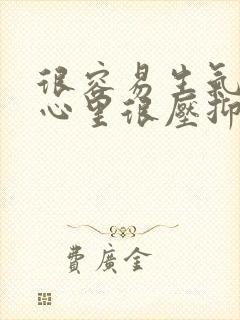 很容易生氣
心里很壓抑
費廣金